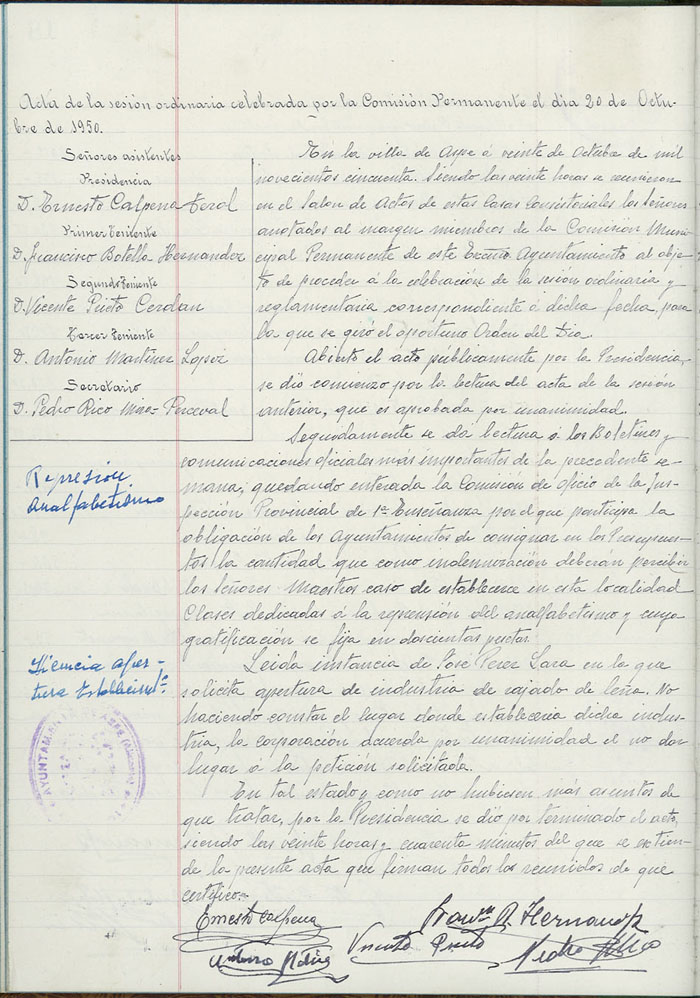 Acta de la sesión ordinaria celebrada por la Comisión Permanente el dia 20 de Octu-
bre de 1950.
Señores asistentes
Presidencia
D. Ernesto Calpena Teral
Primer Teniente
D. Francisco Botella Hernandez
Segundo Teniente
D. Vicente Prieto Cerdan
Tercer Teniente
D. Antonio Martinez Lopez
Secretario
D. Pedro Rico Perceval
En la villa de Aspe á veinte de Octubre de mil
novecientos cincuenta. Siendo las veinte horas se reunieron
en el Salon de Actos de estas Casas Consistoriales los Señores
anotados al margen miembros de la Comisión Muni-
cipal Permanente de este Excmo Ayuntamiento al obje-
to de proceder á la celebración de la sesión ordinaria y
reglamentaria correspondiente á dicha fecha, para
la que se giró el oportuno Orden del Dia.
Abierto el acto públicamente por la Presidencia,
se dió comienzo por la lectura del acta de la sesión
anterior, que es aprobada por unanimidad.
Represion
analfabetismo
Seguidamente se dá lectura á los Boletines y
comunicaciones oficiales más importantes de la precedente se-
mana, quedando enterada la Comision de oficio de la Ins-
pección Provincial de 1ª Enseñanza por el que participa la
obligación de los Ayuntamientos de consignar en los Presupues-
tos la cantidad que como indemnización deberán percibir
los Señores Maestros caso de establecerse en esta localidad
Clases dedicadas á la represión del analfabetismo y cuya
gratificación se fija en doscientas pesetas.
Licencia aper-
tura Establecimtº
Leida instancia de José Perez Lara en la que
solicita apertura de industria de cajado de leña. No
haciendo constar el lugar donde estableceria dicha indus-
tria, la corporación acuerda por unanimidad el no dar
lugar á la petición solicitada.
AYUNTAMIENTO
En tal estado y como no hubiesen más asuntos de
que tratar, por la Presidencia se dió por terminado el acto,
siendo las veinte horas y cuarenta minutos del que se extien-
de la presente acta que firman todos los reunidos de que
certifico.-
Ernesto Calpena
Hernandez
Vicente Prieto
Pedro Rico